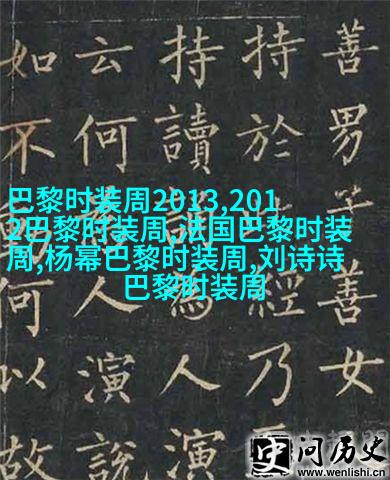 善男子善女
持於經乃
持讀誦為人演
云何為人演說
如不何以故
巴黎时装周2013,201
2巴黎时装周,法国巴黎时装
周,杨幂巴黎时装周,刘诗诗
巴黎时装周
史问历史
www.wenlishi.cn